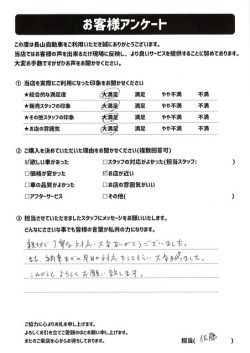 お客様アンケート
この度は長山自動車をご利用いただき誠にありがとうございます。
当店ではお客様の声を出来るだけ現場に反映し、より良いサービスを提供することに努めております。
大変お手数ですがぜひお声をお聞かせください。
① 当店を実際にご利用になった印象をお聞かせください
★総合的な満足度 大満足 満足 やや不満 不満
★販売スタッフの印象 大満足 満足 やや不満 不満
★その他スタッフの印象 大満足 満足 やや不満 不満
★お店の雰囲気 大満足 満足 やや不満 不満
② ご購入を決めていただいた理由をお聞かせください(複数回答可)
欲しい車があった □スタッフの対応がよかった(担当スタッフ: )
□価格が安かった お店が近い
□車の品質がよかった □お店の雰囲気がいい
□アフターサービス □その他( )
③ 担当させていただきましたスタッフにメッセージをお願いいたします。
どんなにささいな事でも皆様の言葉が私共の力になります。
親切、丁寧な対応、大変ありがとうございました。
また、納車までの早急の対応をしてもらい、大変感謝しました。
これからもよろしくお願い致します。
ご協力に心よりお礼を申し上げます。
よろしく お引き立てご愛顧のほどお願い申し上げます。
またのご来店を心からお待ちしております。
担当( 佐藤 )